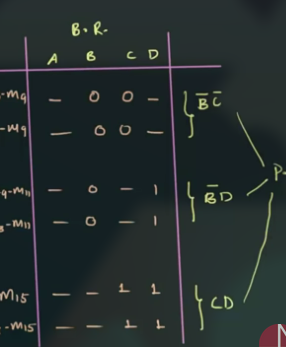 B.R.
A B C D
-m9 — 0 0 — B̅ C̅
-m9 — 0 0 —
9-m11 — 0 — 1 B̅ D P.
-m11 — 0 — 1
m15 — — 1 1 CD
-m15 — — 1 1